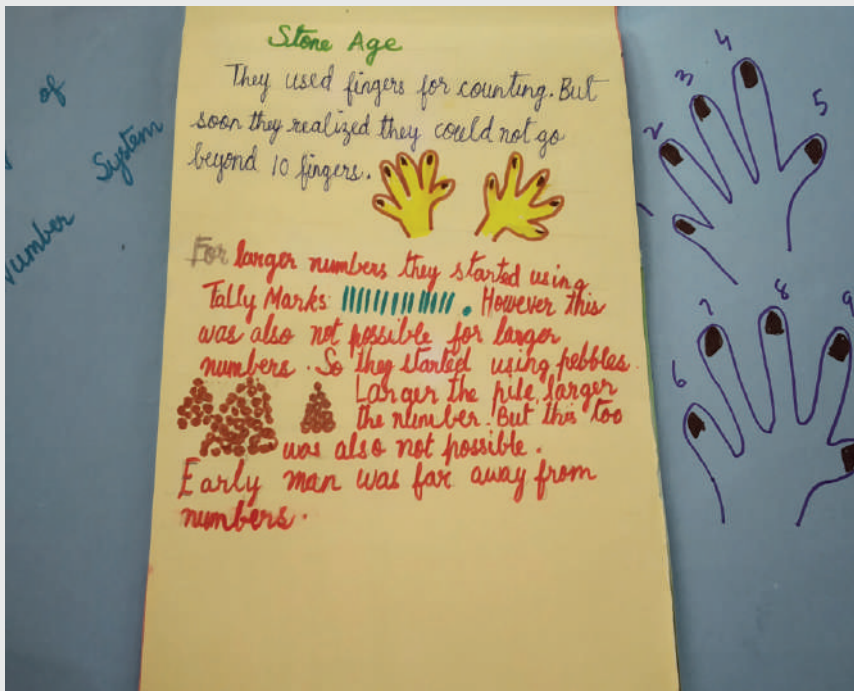 of
Number System
Stone Age
They used fingers for counting. But
soon they realized they could not go
beyond 10 fingers.
For larger numbers they started using
Tally Marks |||||||||||||. However this
was also not possible for larger
numbers. So they started using pebbles.
Larger the pile, larger
the number. But this too
was also not possible.
Early man was far away from
numbers.
1 2 3 4 5
6 7 8 9